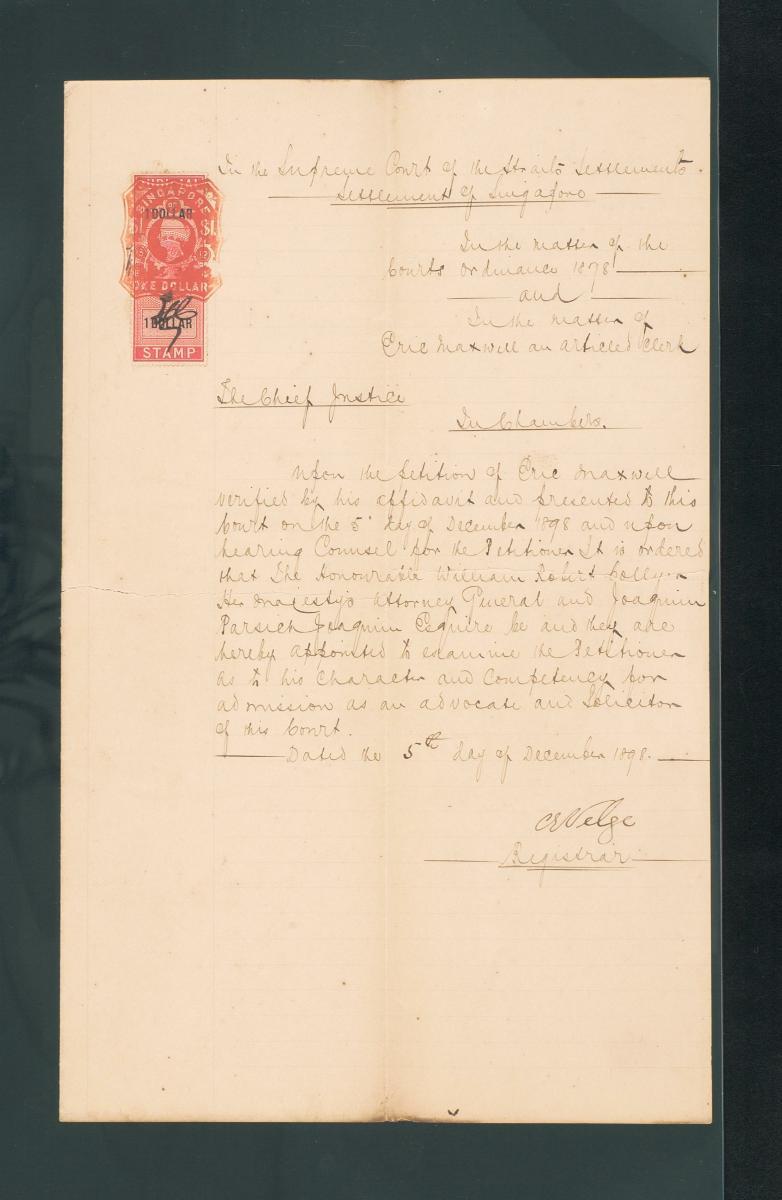 In the Supreme Court of the Straits Settlements.
Settlement of Singapore
JUDICIAL
SINGAPORE
1 DOLLAR
$1 $1
ONE DOLLAR
1 DOLLAR
STAMP
In the matter of the
Courts Ordinance 1878
and
In the matter of
Eric Maxwell an articled clerk
The Chief Justice
In Chambers.
Upon the petition of Eric Maxwell
verified by his affidavit and presented to this
Court on the 5 day of December 1898 and upon
hearing Counsel for the Petitioner It is ordered
that The Honourable William Robert Collyer
Her Majesty's Attorney General and Joaquim
Parsick Joaquim Esquire be and they are
hereby appointed to examine the Petitioner
as to his Character and Competency for
admission as an advocate and Solicitor
of this Court.
Dated the 5th day of December 1898.
CEVelge
Registrar